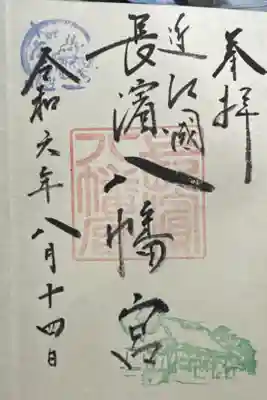 奉拝
近江國
長濱八幡宮
令和六年八月十四日